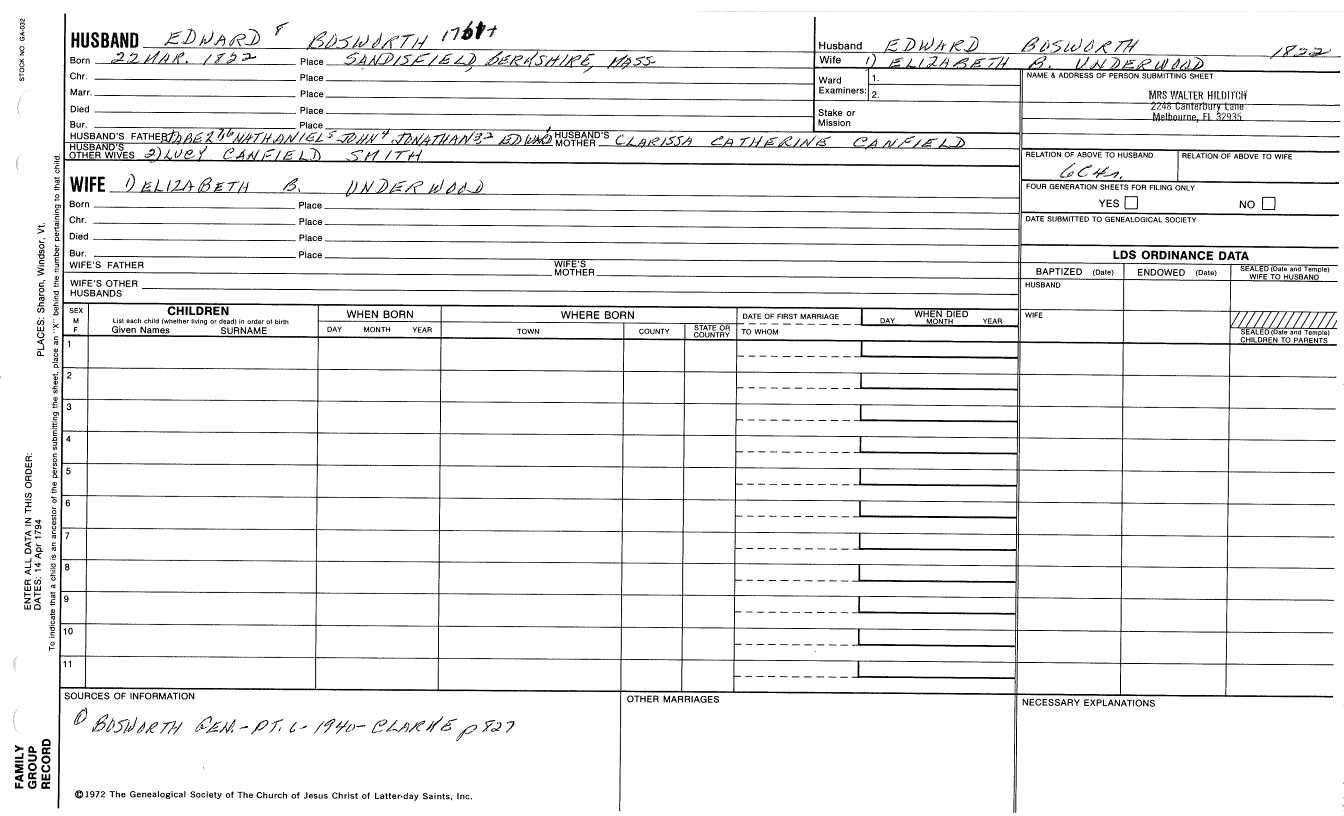 STOCK NO. GA-032
HUSBAND EDWARD 8 BOSWORTH
Born 22 MAR. 1822 Place SANDISFIELD, BERKSHIRE, MASS
Chr. Place
Marr. Place
Died Place
Bur. Place
HUSBAND'S FATHER NATHANIEL5 JOHN4 JONATHAN3-2 EDWARD1 HUSBAND'S MOTHER CLARISSA CATHERINE CANFIELD
HUSBAND'S OTHER WIVES 2) LUCY CANFIELD SMITH
WIFE 1) ELIZABETH B. UNDERWOOD
Born Place
Chr. Place
Died Place
Bur. Place
WIFE'S FATHER WIFE'S MOTHER
WIFE'S OTHER HUSBANDS
Husband EDWARD BOSWORTH 1822
Wife 1) ELIZABETH B. UNDERWOOD
Ward Examiners: 1.
2.
Stake or Mission
NAME & ADDRESS OF PERSON SUBMITTING SHEET
MRS WALTER HILDITCH
2248 Canterbury Lane
Melbourne, FL 32935
RELATION OF ABOVE TO HUSBAND RELATION OF ABOVE TO WIFE
FOUR GENERATION SHEETS FOR FILING ONLY
YES NO
DATE SUBMITTED TO GENEALOGICAL SOCIETY
LDS ORDINANCE DATA
BAPTIZED (Date) ENDOWED (Date) SEALED (Date and Temple) WIFE TO HUSBAND
HUSBAND
WIFE
SEALED (Date and Temple) CHILDREN TO PARENTS
SEX M F
CHILDREN
List each child (whether living or dead) in order of birth
Given Names SURNAME
WHEN BORN
DAY MONTH YEAR
WHERE BORN
TOWN COUNTY STATE OR COUNTRY
DATE OF FIRST MARRIAGE
TO WHOM
WHEN DIED
DAY MONTH YEAR
1
2
3
4
5
6
7
8
9
10
11
SOURCES OF INFORMATION
1) BOSWORTH GEN.-PT. 6-1940-CLARKE p827
OTHER MARRIAGES
NECESSARY EXPLANATIONS
©1972 The Genealogical Society of The Church of Jesus Christ of Latter-day Saints, Inc.
PLACES: Sharon, Windsor, Vt.
ENTER ALL DATA IN THIS ORDER:
DATES: 14 Apr 1794
To indicate that a child is an ancestor of the person submitting the sheet, place an "X" behind the number pertaining to that child.
FAMILY
GROUP
RECORD